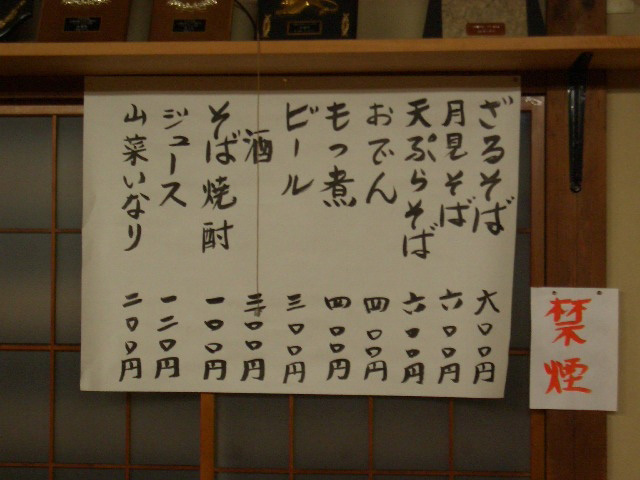 ざるそば 六〇〇円
月見そば 六〇〇円
天ぷらそば 六〇〇円
おでん 四〇〇円
もつ煮 四〇〇円
ビール 三〇〇円
酒 三〇〇円
そば焼酎 一〇〇円
ジュース 一二〇円
山菜いなり 二〇〇円
禁煙